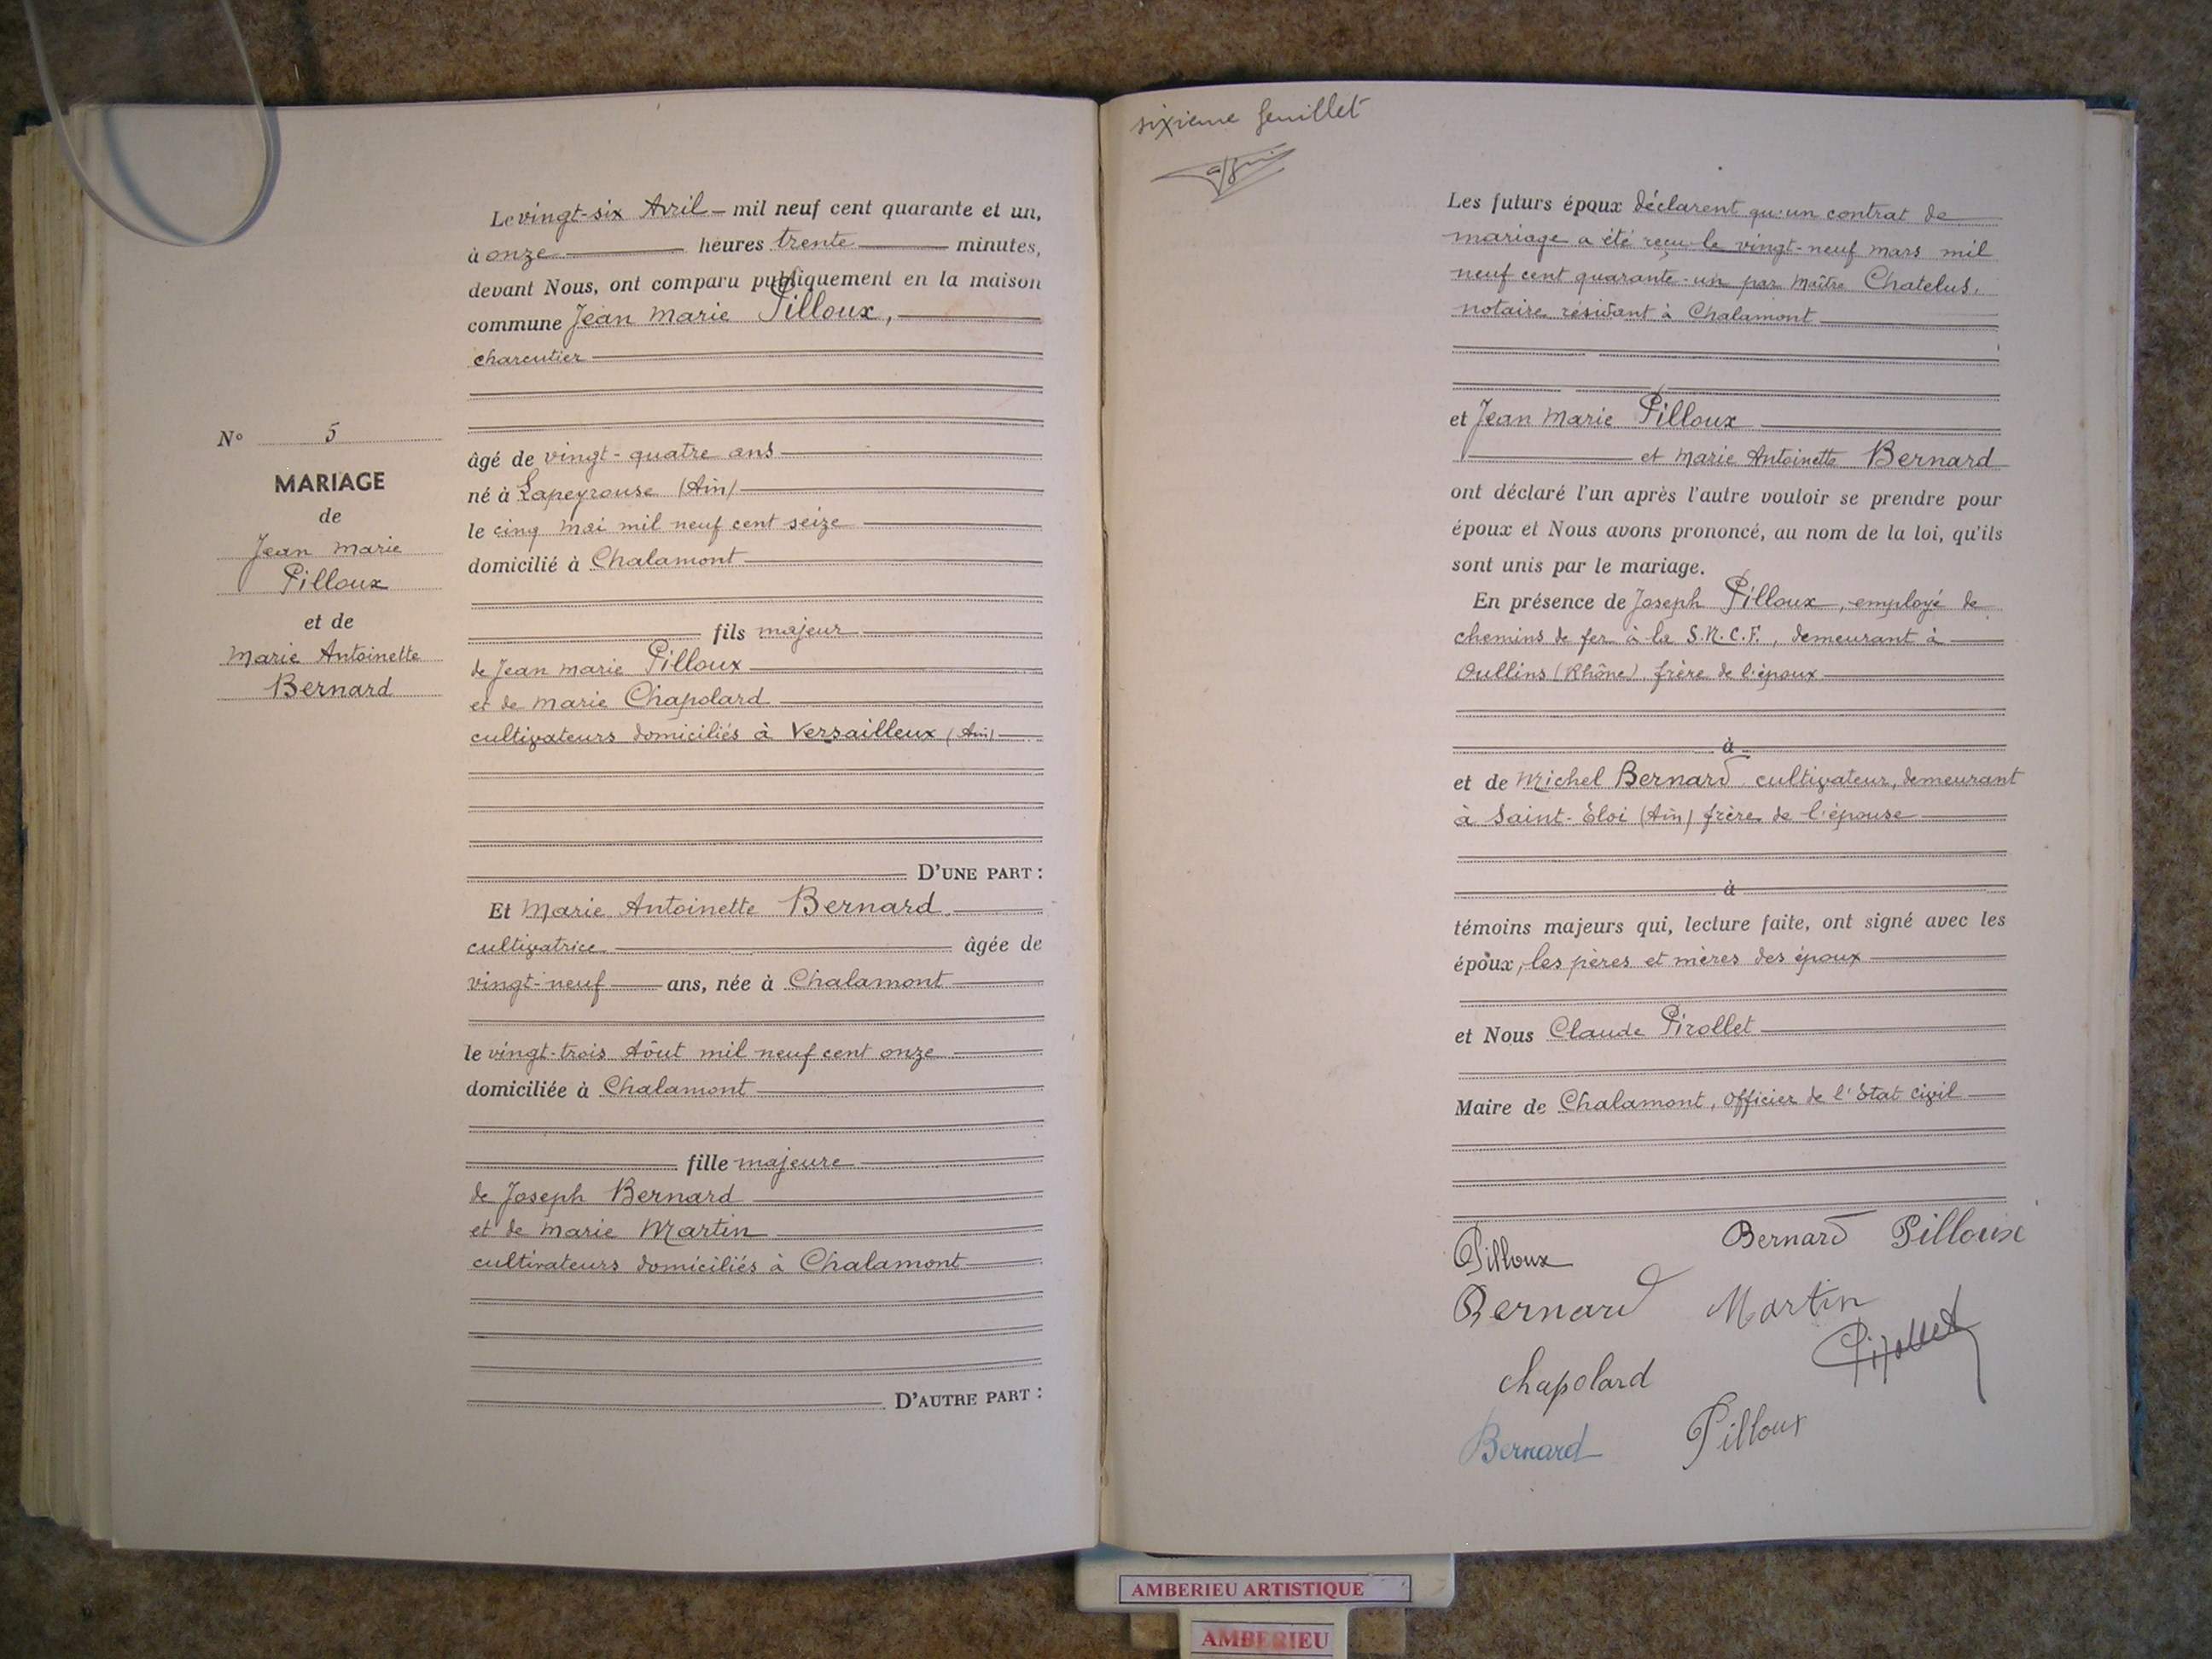 Le vingt-six Avril - mil neuf cent quarante et un,
à onze heures trente minutes,
devant Nous, ont comparu publiquement en la maison
commune Jean Marie Pilloux,
charcutier
âgé de vingt-quatre ans
né à Lapeyrouse (Ain)
le cinq mai mil neuf cent seize
domicilié à Chalamont
fils majeur
de Jean Marie Pilloux
et de Marie Chapolard
cultivateurs domiciliés à Versailleux (Ain)
D'UNE PART :
Et Marie Antoinette Bernard
cultivatrice âgée de
vingt-neuf ans, née à Chalamont
le vingt-trois Aôut mil neuf cent onze
domiciliée à Chalamont
fille majeure
de Joseph Bernard
et de Marie Martin
cultivateurs domiciliés à Chalamont
D'AUTRE PART :
N° 5
MARIAGE
de
Jean Marie
Pilloux
et de
Marie Antoinette
Bernard
sixième feuillet
Les futurs époux déclarent qu'un contrat de
mariage a été reçu le vingt-neuf mars mil
neuf cent quarante-un par Maître Chatelus,
notaire résidant à Chalamont
et Jean Marie Pilloux
et Marie Antoinette Bernard
ont déclaré l'un après l'autre vouloir se prendre pour
époux et Nous avons prononcé, au nom de la loi, qu'ils
sont unis par le mariage.
En présence de Joseph Pilloux, employé de
chemins de fer à la S.N.C.F., demeurant à
Oullins (Rhône), frère de l'époux
à
et de Michel Bernard cultivateur, demeurant
à Saint-Eloi (Ain) frère de l'épouse
à
témoins majeurs qui, lecture faite, ont signé avec les
époux, les pères et mères des époux
et Nous Claude Pirollet
Maire de Chalamont, Officier de l'Etat civil
Pilloux Bernard Pilloux
Bernard Martin
Pirollet
Chapolard
Bernard Pilloux
AMBERIEU ARTISTIQUE
AMBERIEU